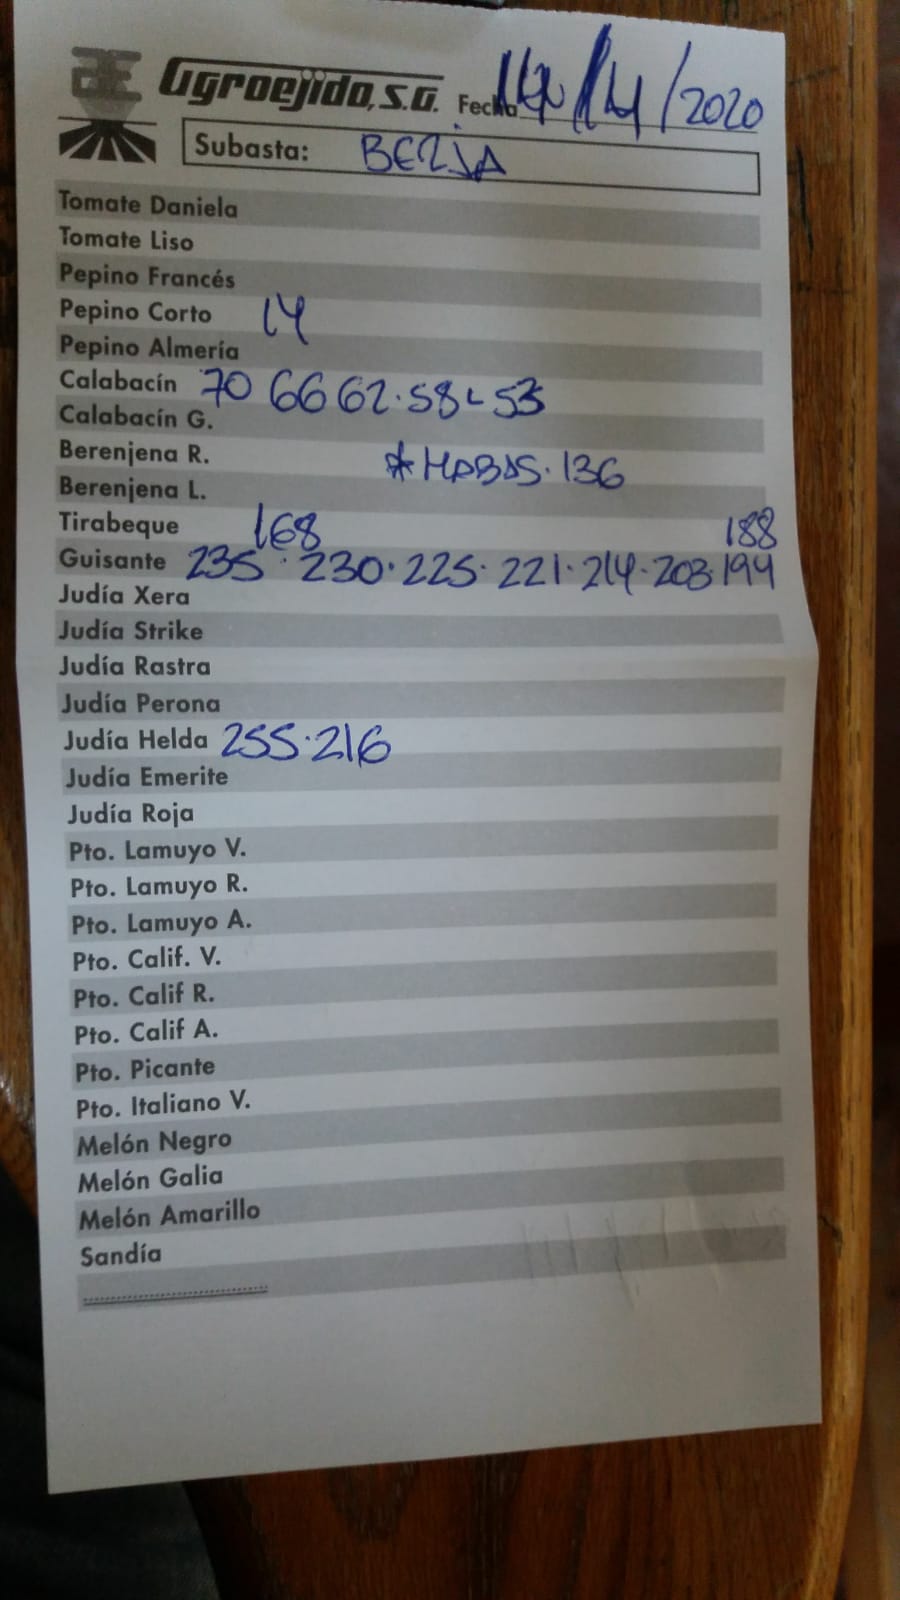 Agroejido, S.A. Fecha 14/4/2020
Subasta: BERJA
Tomate Daniela
Tomate Liso
Pepino Francés
Pepino Corto 14
Pepino Almería
Calabacín 70 66 62·58-53
Calabacín G.
Berenjena R. * HABAS·136
Berenjena L.
Tirabeque 168 188
Guisante 235·230·225·221·214·203·194
Judía Xera
Judía Strike
Judía Rastra
Judía Perona
Judía Helda 255·216
Judía Emerite
Judía Roja
Pto. Lamuyo V.
Pto. Lamuyo R.
Pto. Lamuyo A.
Pto. Calif. V.
Pto. Calif R.
Pto. Calif A.
Pto. Picante
Pto. Italiano V.
Melón Negro
Melón Galia
Melón Amarillo
Sandía